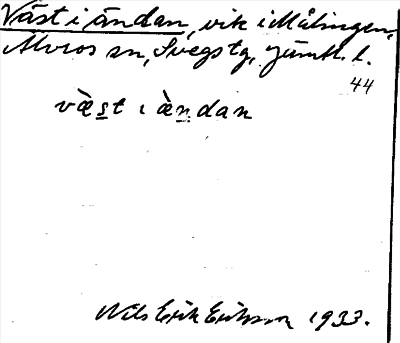 Väst i ändan, vik i Målingen,
Älvros sn, Svegs tg, Jämtl. l.
44
væ̀st ı æ̀ndan
Nils Erik Eriksson 1933.